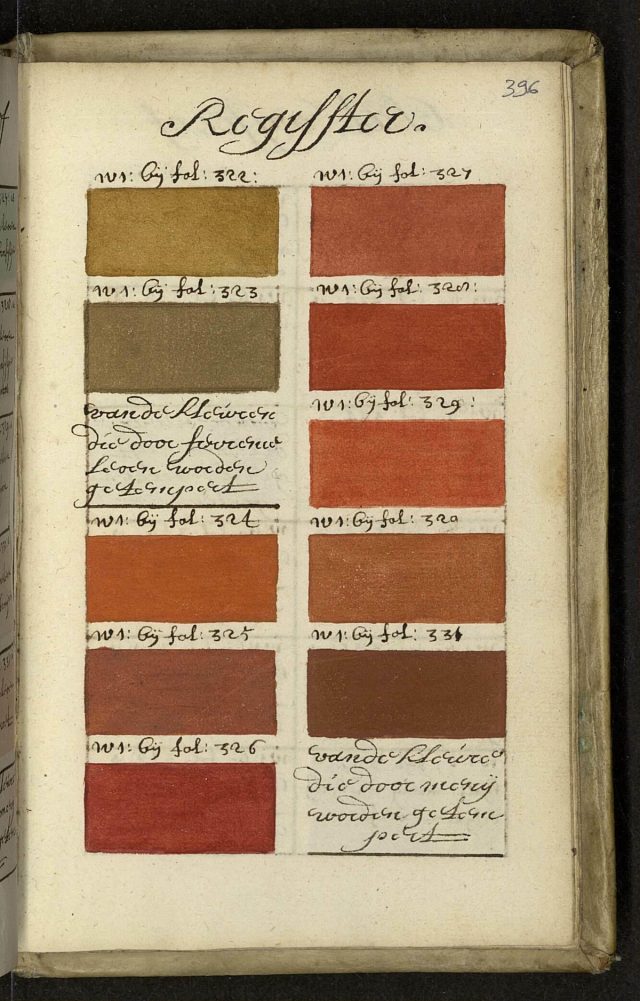 396
Regysster.
N1: bÿ fol: 322:
N1: bÿ fol: 323
vande kleuren
die door
worden
getempert
N1: bÿ fol: 324
N1: bÿ fol: 325
N1: bÿ fol: 326
N1: bÿ fol: 327
N1: bÿ fol: 328:
N1: bÿ fol: 329:
N1: bÿ fol:
N1: bÿ fol: 331
vande kleure
die door menÿ
worden getem
pert